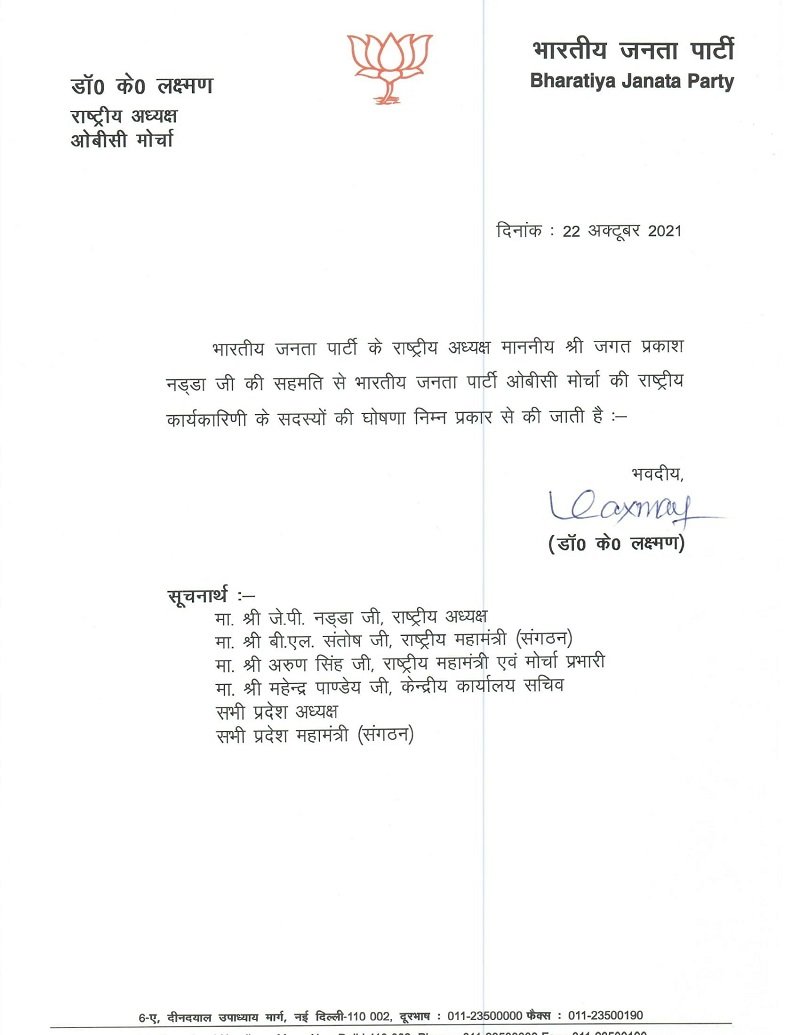 भारतीय जनता पार्टी
Bharatiya Janata Party
डॉ0 के0 लक्ष्मण
राष्ट्रीय अध्यक्ष
ओबीसी मोर्चा
दिनांक : 22 अक्टूबर 2021
भारतीय जनता पार्टी के राष्ट्रीय अध्यक्ष माननीय श्री जगत प्रकाश
नड्डा जी की सहमति से भारतीय जनता पार्टी ओबीसी मोर्चा की राष्ट्रीय
कार्यकारिणी के सदस्यों की घोषणा निम्न प्रकार से की जाती है :–
भवदीय,
(डॉ0 के0 लक्ष्मण)
सूचनार्थ :–
मा. श्री जे.पी. नड्डा जी, राष्ट्रीय अध्यक्ष
मा. श्री बी.एल. संतोष जी, राष्ट्रीय महामंत्री (संगठन)
मा. श्री अरुण सिंह जी, राष्ट्रीय महामंत्री एवं मोर्चा प्रभारी
मा. श्री महेन्द्र पाण्डेय जी, केन्द्रीय कार्यालय सचिव
सभी प्रदेश अध्यक्ष
सभी प्रदेश महामंत्री (संगठन)
6-ए, दीनदयाल उपाध्याय मार्ग, नई दिल्ली-110 002, दूरभाष : 011-23500000 फैक्स : 011-23500190